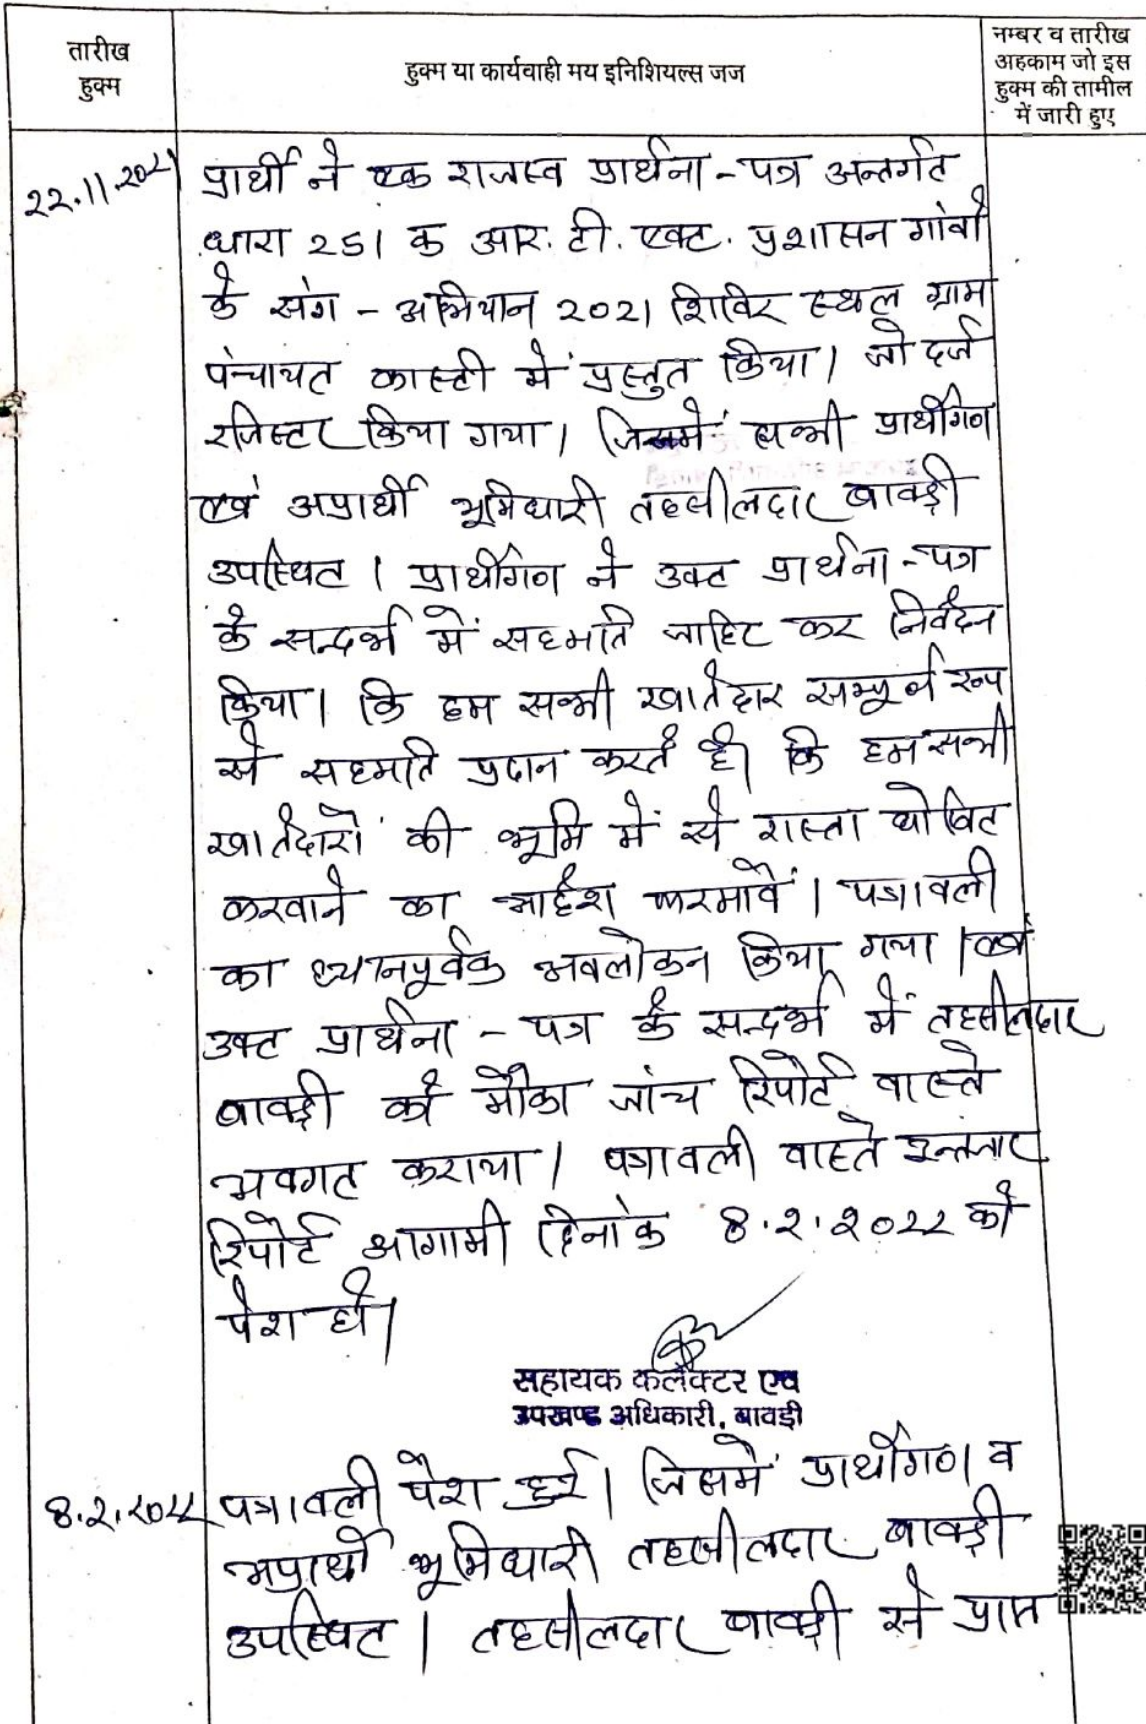 तारीख
हुक्म
हुक्म या कार्यवाही मय इनिशियल्स जज
नम्बर व तारीख
अहकाम जो इस
हुक्म की तामील
में जारी हुए
22.11.2021
प्रार्थी ने एक राजस्व प्रार्थना-पत्र अन्तर्गत
धारा 251 क आर. टी. एक्ट. प्रशासन गांवों
के संग - अभियान 2021 शिविर स्थल ग्राम
पंचायत कास्टी में प्रस्तुत किया। जो दर्ज
रजिस्टर किया गया। जिसमें सभी प्रार्थीगण
एवं अप्रार्थी भूमिधारी तहसीलदार बावड़ी
उपस्थित। प्रार्थीगण ने उक्त प्रार्थना-पत्र
के सन्दर्भ में सहमति जाहिर कर निवेदन
किया। कि हम सभी खातेदार सम्पूर्ण रूप
से सहमति प्रदान करते है। कि हम सभी
खातेदारों की भूमि में से रास्ता घोषित
करवाने का आदेश फरमावें। पत्रावली
का ध्यानपूर्वक अवलोकन किया गया। एवं
उक्त प्रार्थना - पत्र के सन्दर्भ में तहसीलदार
बावड़ी को मौका जांच रिपोर्ट वास्ते
अवगत कराया। पत्रावली वास्ते इन्तजार
रिपोर्ट आगामी दिनांक 8.2.2022 को
पेश हो।
सहायक कलेक्टर एवं
उपखण्ड अधिकारी, बावड़ी
8.2.2022
पत्रावली पेश हुई। जिसमें प्रार्थीगण व
अप्रार्थी भूमिधारी तहसीलदार बावड़ी
उपस्थित। तहसीलदार बावड़ी से प्राप्त